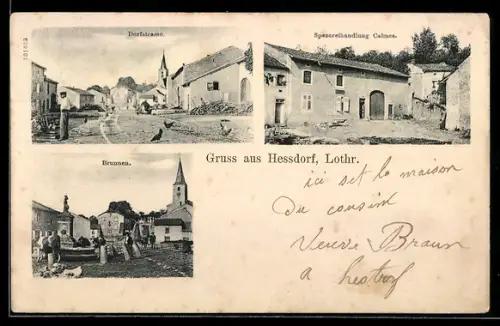 Dorfstrasse.
Spezereihandlung Calmes.
Brunnen.
Gruss aus Hessdorf, Lothr.
ici set la maison
Du cousin
Veuve Braun
a hestrof